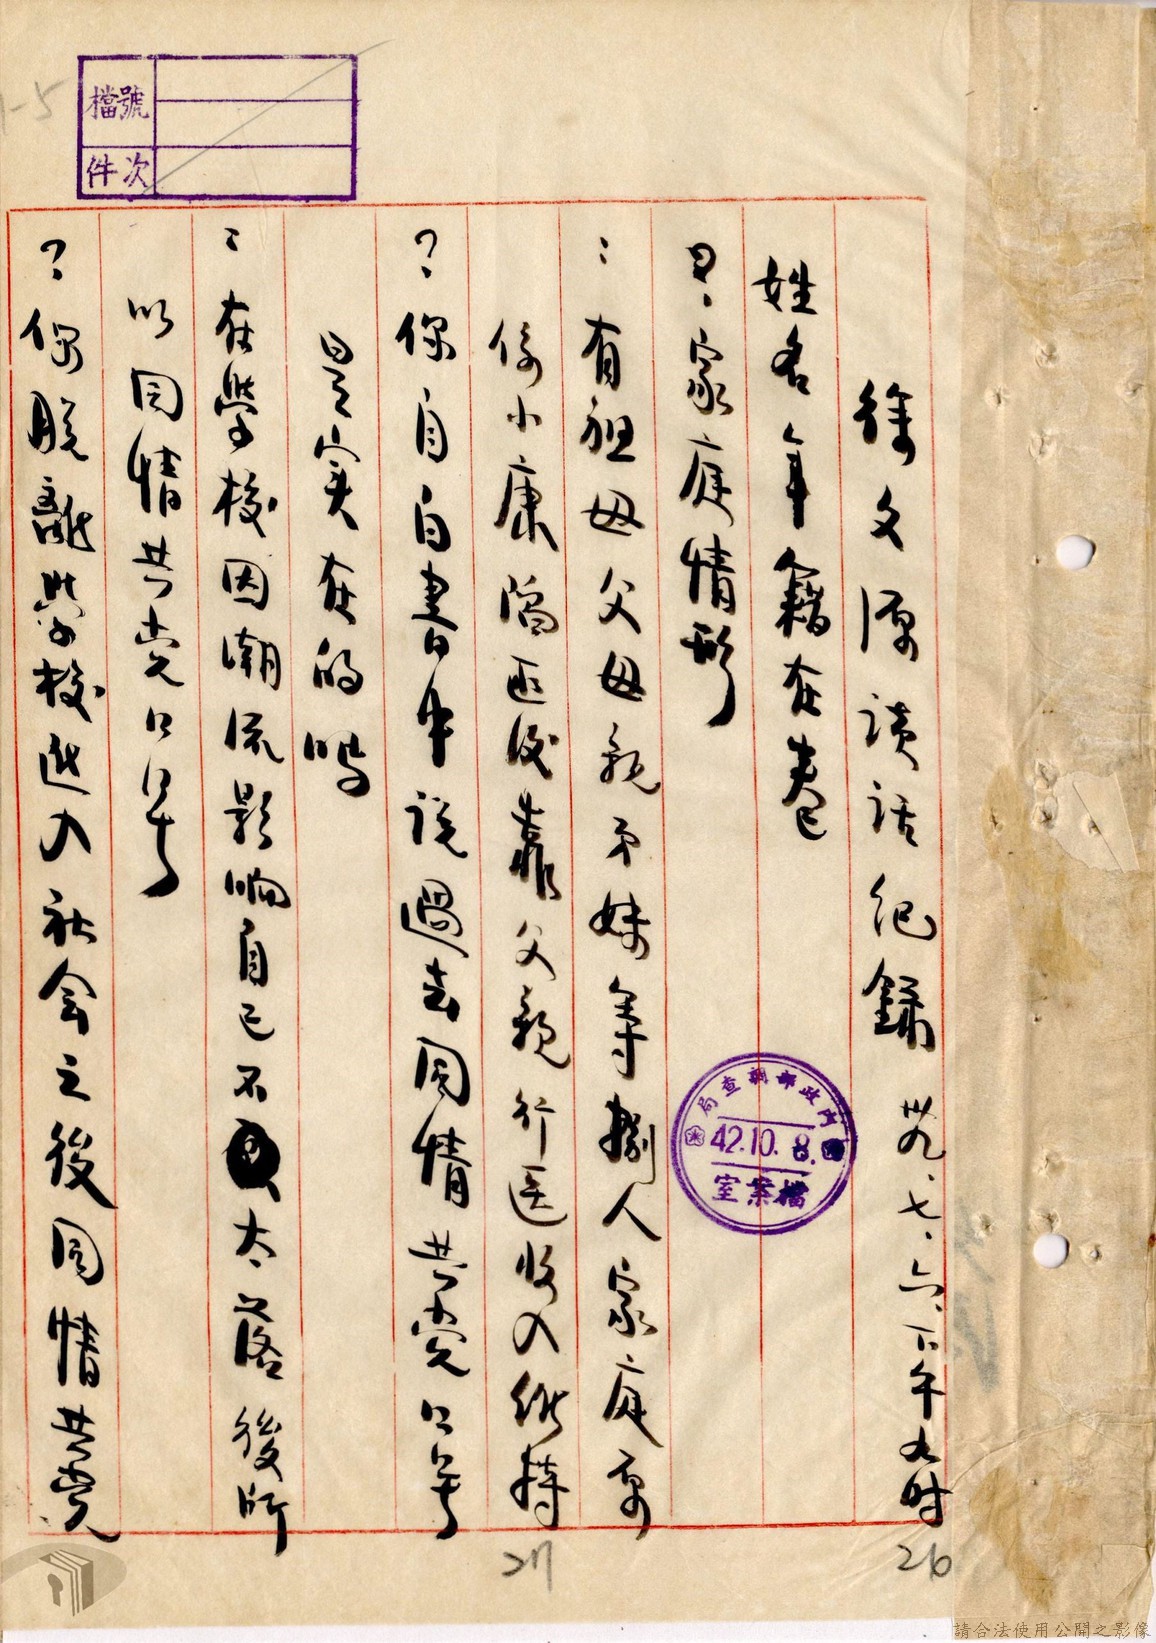 檔號
件次
1-5
徐文源談話紀錄 卅九、七、六、下午九时
姓名年籍在卷
問：家庭情形
：有祖母父母親弟妹等捌人家庭原
係小康 匪後靠父親行医收入維持
？：你自白書中說過去同情共党口号
是实在的嗎
：在學校因潮流影响自己不 太落後所
以同情共党口号
？：你脫離學校進入社会之後同情共党
內政部調查局
42.10.8.
檔案室
26
27
請合法使用公開之影像